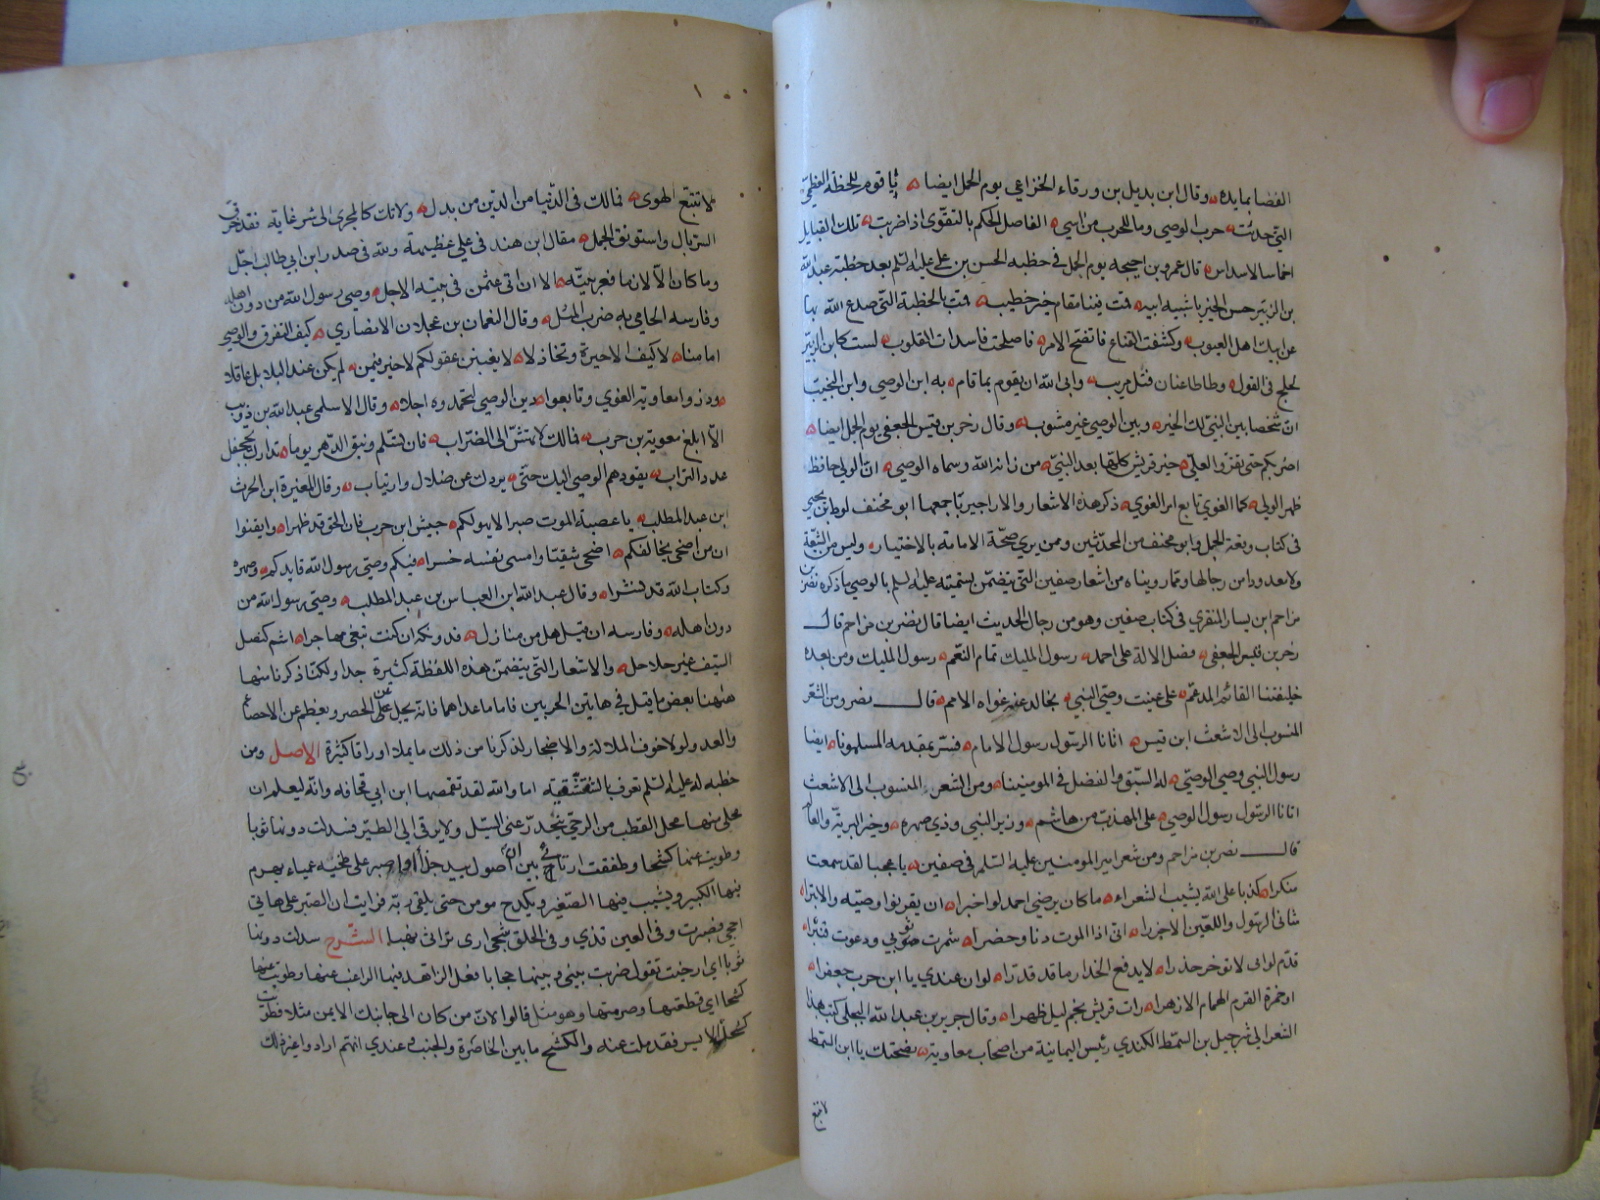 الفضا بمايده وقال ابن بديل بن ورقاء الخزاعي يوم الجمل ايضا يا قوم للخطة العظمى
التي حدثت حرب الوصي وما للحرب من اسي الفاصل الحكم بالتقوى اذا ضربت تلك القبايل
اخماسا لاسداس قال عمرو بن احيحه يوم الجمل في خطبه الحسن بن علي عليه السلم بعد خطبة عبد الله
بن الزبير حسن الخير يا شبيه ابيه قمت فينا مقام خير خطيب قمت بالخطبة التي صدع الله بها
عن ابيك اهل العيوب وكشفت القناع فاتضح الامر فاصلحت فاسدات القلوب لست كابن الزبير
لجلج في القول وطاطا عنان فسل مريب وابى الله ان يقوم بما قام به ابن الوصي وابن النجيب
ان شخصا بين النبي لك الخير وبين الوصي غير مشوب وقال زحر بن قيس الجعفي يوم الجمل ايضا
اضربكم حتى تقروا لعلي خير قريش كلها بعد النبي من زانه الله وسماه الوصي ان الولي حافظ
ظهر الولي كما الغوي تابع امر الغوي ذكر هذه الاشعار والاراجيز باجمعها ابو مخنف لوط بن يحيى
في كتاب وقعة الجمل وابو مخنف من المحدثين وممن يرى صحة الامامة بالاختيار وليس من الشيعة
ولا معدودا من رجالها ومما رويناه من اشعار صفين التي تتضمن تسميته عليه السلم بالوصي ما ذكره نصر بن
مزاحم ابن يسار المنقري في كتاب صفين وهو من رجال الحديث ايضا قال نصر بن مزاحم قال
زحر بن قيس الجعفي فصل الاله على احمد رسول المليك تمام النعم رسول المليك ومن بعده
خليفتنا القائم المدعم علي عنيت وصي النبي يجالد عنه غواه الامم قال نصر ومن الشعر
المنسوب الى الاشعث ابن قيس اتانا الرسول رسول الامام فسر بمقدمه المسلمونا ايضا
رسول النبي وصي الوصي له السبق والفضل في المومنينا ومن الشعر المنسوب الى الاشعث
اتانا الرسول رسول الوصي علي المهذب من هاشم وزير النبي وذي صهره وخير البرية والعالم
قال نصر بن مزاحم ومن شعر امير المومنين عليه السلم في صفين يا عجبا لقد سمعت
منكرا كذبا على الله يشيب الشعراء ما كان يرضى احمد لو اخبرا ان يقرنوا وصيه والابترا
شانى الرسول واللعين الاخزرا اني اذا الموت دنا وحضرا شمرت ثوبي ودعوت قنبرا
قدم لوائي لا توخر حذرا لا يدفع الحذار ما قد قدرا لو ان عندي يا ابن حرب جعفرا
او حمزة القرم الهمام الازهرا رات قريش نجم ليل ظهرا وقال جرير بن عبد الله البجلي كتب هذا
الشعر الى شرحبيل بن السمط الكندي رئيس اليمانية من اصحاب معاوية نصحتك يا ابن السمط
لا تتبع
لا تتبع الهوى فمالك في الدنيا من الدين من بدل ولا تك كالمجرى الى شر غاية فقد خرق
السربال واستونق الجمل مقال ابن هند في علي عظيمة ولله في صدر ابن ابي طالب اجل
وما كان الا لازما قعر بيته الى ان اتى عثمن في بيته الاجل وصي رسول الله من دون اهله
وفارسه الحامي به ضرب المثل وقال النعمان بن عجلان الانصاري كيف التفرق والوصي
امامنا لا كيف الا حيرة وتخاذلا لا يغبنن عقولكم لا خير فيمن لم يكن عند البلابل عاقلا
وذروا معاوية الغوي وتابعوا دين الوصي لتحمدوه اجلا وقال الاسلمي عبد الله بن ذويب
الا ابلغ معوية بن حرب فمالك لا تهش الى الضراب فان تسلم وتبق الدهر يوما نزرك بجحفل
عدد التراب يقودهم الوصي اليك حتى يردك عن ضلال وارتياب وقال المغيرة ابن الحرث
ابن عبد المطلب يا عصبة الموت صبرا لا يهولكم جيش ابن حرب فان الحق قد ظهرا وايقنوا
ان من اضحى يخالفكم اضحى شقيا وامسى نفسه خسرا فيكم وصي رسول الله قايدكم وصهره
وكتاب الله قد نشرا وقال عبد الله ابن العباس بن عبد المطلب وصي رسول الله من
دون اهله وفارسه ان قيل هل من منازل فدونكه ان كنت تبغي مهاجرا اشم كنصل
السيف غير حلاحل والاشعار التي يتضمن هذه اللفظة كثيرة جدا ولكنا ذكرنا منها
ههنا بعض ما قيل في هاتين الحربين فاما ما عداهما فانه يجل عن الحصر ويعظم عن الاحصاء
والعد ولولا خوف الملالة والاضجار لذكرنا من ذلك ما يملا اوراقا كثيرة الاصل ومن
خطبه له عليه السلم تعرف بالشقشقية اما والله لقد تقمصها ابن ابي قحافه وانه ليعلم ان
محلي منها محل القطب من الرحى ينحدر عني السيل ولا يرقى الى الطير فسدلت دونها ثوبا
وطويت عنها كشحا وطفقت ارتاي بين ان اصول بيد جذا او اصبر على طخيه عمياء يهرم
فيها الكبير ويشيب فيها الصغير ويكدح مومن حتى يلقى ربه فرايت ان الصبر على هاتي
احجى فصبرت وفي العين قذى وفي الحلق شجى ارى تراثي نهبا الشرح سدلت دونها
ثوبا اي ارخيت تقول ضربت بيني وبينها حجابا فعل الزاهد فيها الراغب عنها وطويت عنها
كشحا اي قطعتها وصرمتها وهو مثل قالوا لان من كان الى جانبك الايمن مثلا فطويت
كشحك الايسر فقد ملت عنه والكشح ما بين الخاصرة والجنب وعندي انهم ارادوا غير ذلك